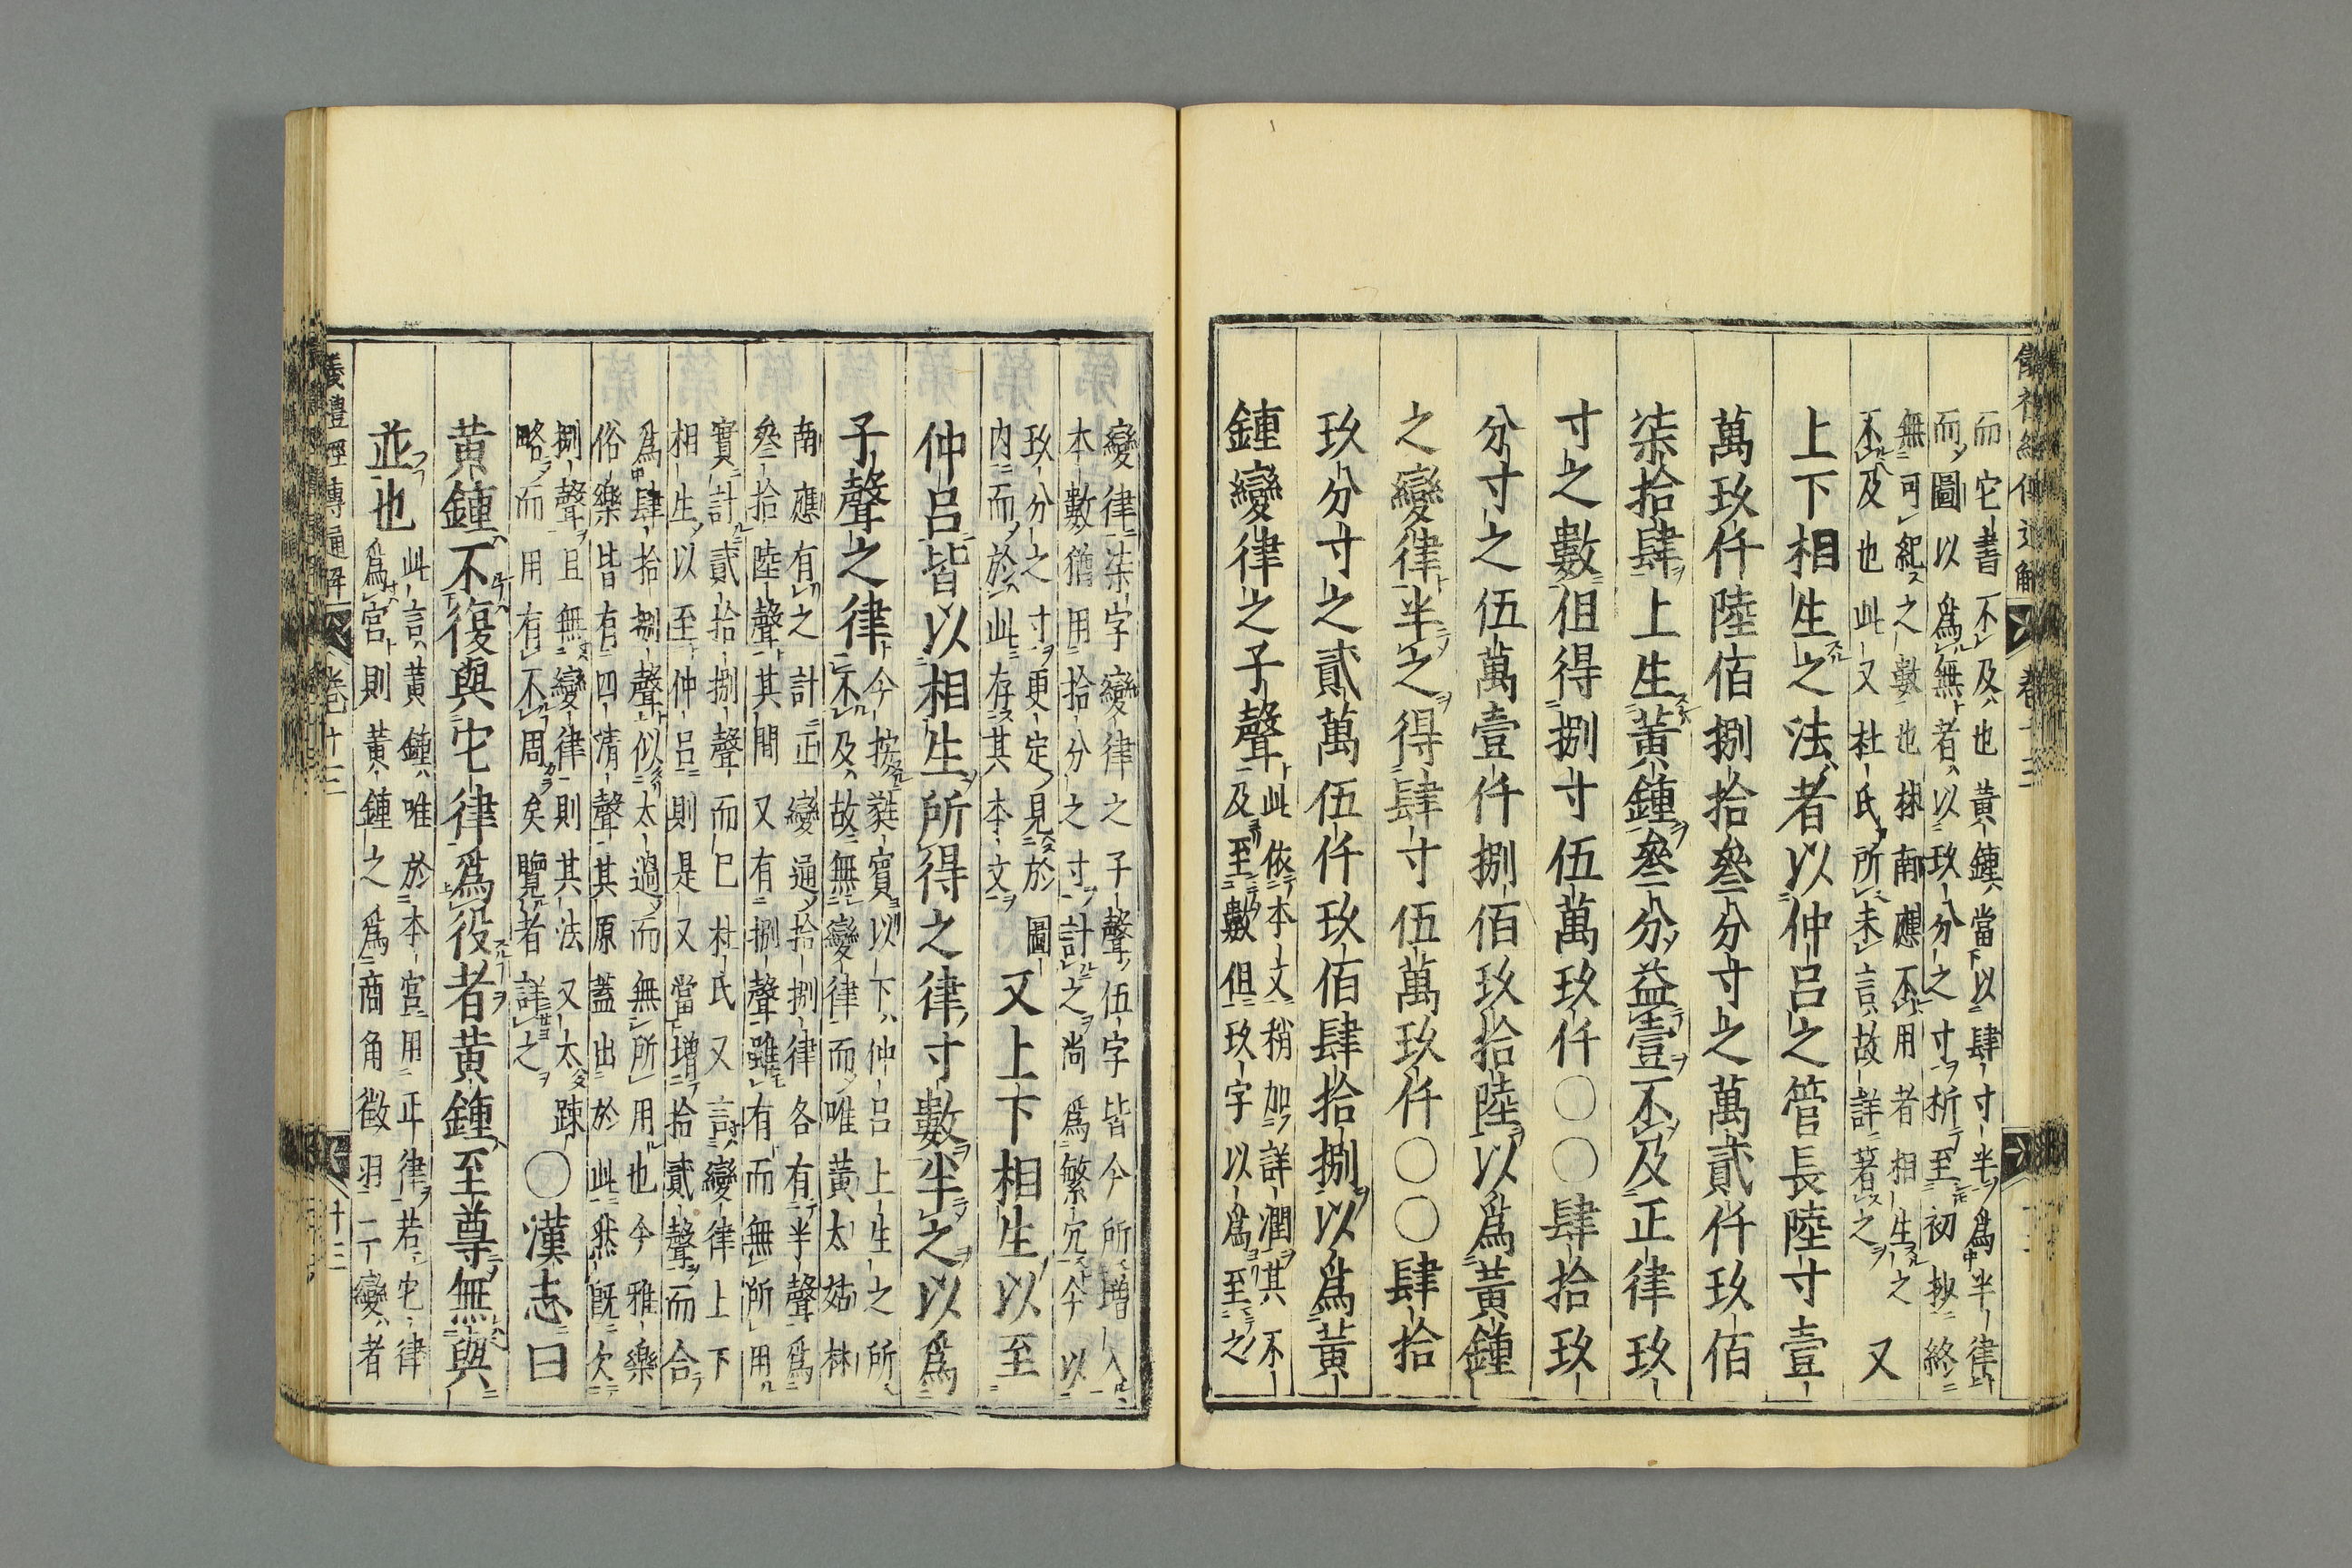 而它書不及也黃鍾當以肆寸半爲半律
而圖以爲無者以玖分之寸析至初抄終
無可紀之數也林南應不用者相生之
不及也此又杜氏所未言故詳著之
又
上下相生之法者以仲呂之管長陸寸壹
萬玖仟陸佰捌拾叄分寸之萬貳仟玖佰
柒拾肆上生黃鍾叄分益壹不及正律玖
寸之數但得捌寸伍萬玖仟〇〇肆拾玖
分寸之伍萬壹仟捌佰玖拾陸以爲黃鍾
之變律半之得肆寸伍萬玖仟〇〇肆拾
玖分寸之貳萬伍仟玖佰肆拾捌以爲黃
鍾變律之子聲
此依本文稍加詳潤其不
及至數但玖字以爲至之
變律柒字變律之子聲伍字皆今所增入
本數猶用拾分之寸計之尚爲繁冗今以
玖分之寸更定見於圖
内而於此存其本文
又上下相生以至
仲呂皆以相生所得之律寸數半之以爲
子聲之律
今按蕤賓以下仲呂上生之所
不及故無變律而唯黃太姑林
南應有之計正變通拾捌律各有半聲爲
叄拾陸聲其間又有捌聲雖有而無所用
實計貳拾捌聲而已杜氏又言變律上下
相生以至仲呂則是又當增拾貳聲而合
爲肆拾捌聲似太過而無所用也今雅樂
俗樂皆有四清聲其原蓋出於此然既欠
捌聲且無變律則其法又太踈
略而用有不周矣覽者詳之
〇漢志曰
黃鍾不復與它律爲役者黃鍾至尊無與
並也
此言黃鍾唯於本宮用正律若它律
爲宮則黃鍾之爲商角徵羽二變者
儀禮經傳通解
卷十三
十三